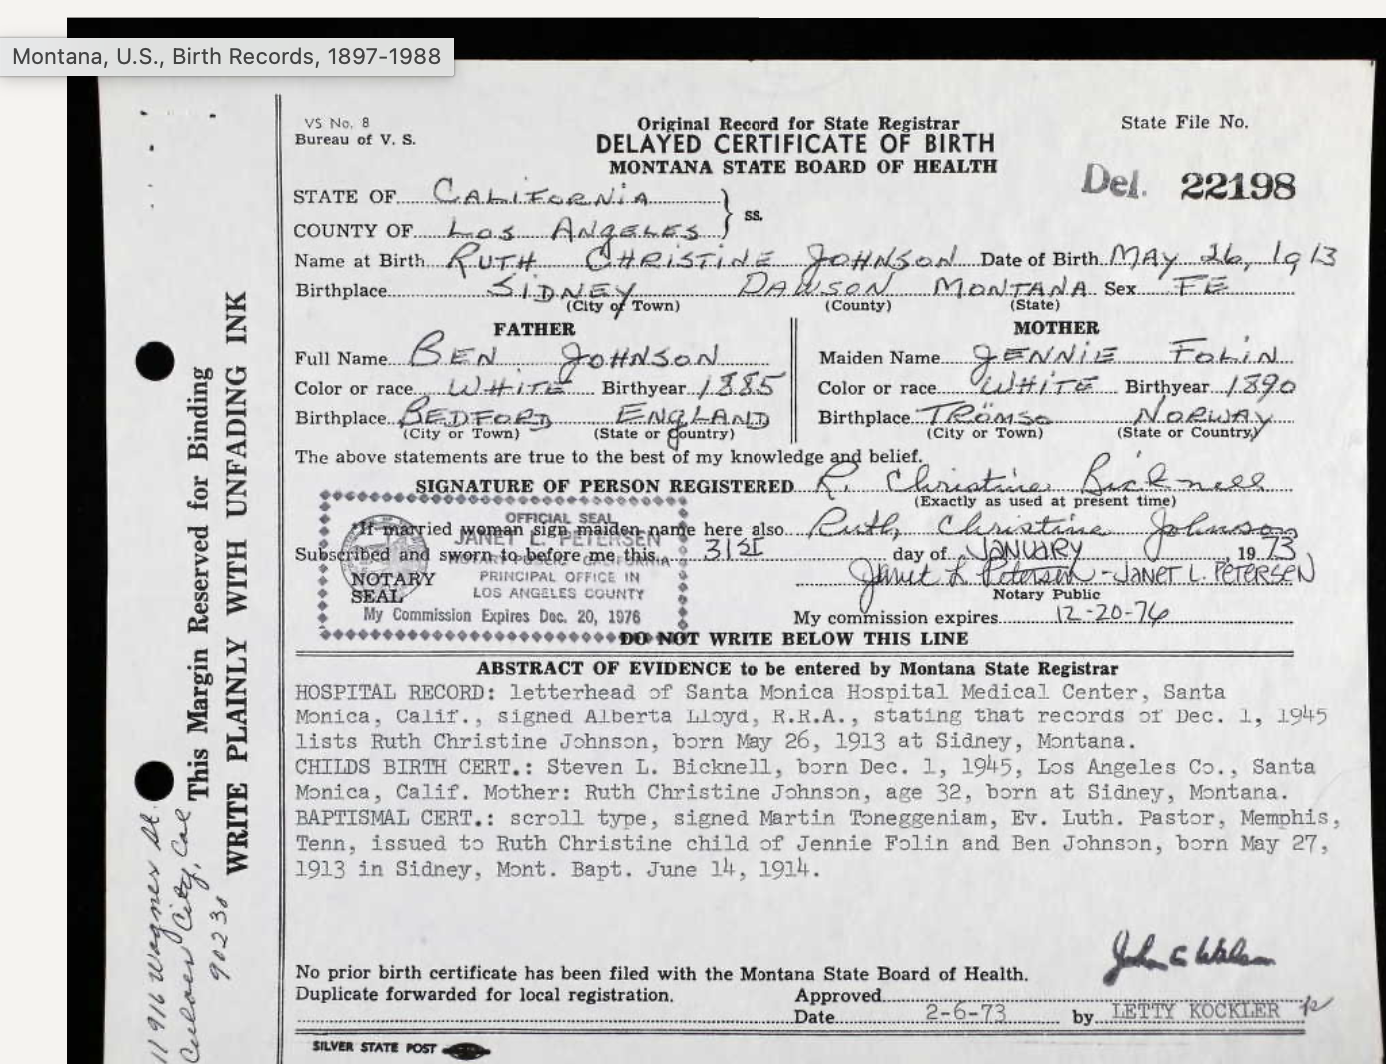 Montana, U.S., Birth Records, 1897-1988
VS No. 8
Bureau of V. S.
Original Record for State Registrar
DELAYED CERTIFICATE OF BIRTH
MONTANA STATE BOARD OF HEALTH
State File No.
Del. 22198
STATE OF CALIFORNIA
COUNTY OF LOS ANGELES } ss.
Name at Birth RUTH CHRISTINE JOHNSON Date of Birth MAY 26, 1913
Birthplace SIDNEY DAWSON MONTANA Sex FE
(City or Town) (County) (State)
FATHER MOTHER
Full Name BEN JOHNSON Maiden Name JENNIE FOLIN
Color or race WHITE Birthyear 1885 Color or race WHITE Birthyear 1890
Birthplace BEDFORD ENGLAND Birthplace TRÖMSO NORWAY
(City or Town) (State or Country) (City or Town) (State or Country)
The above statements are true to the best of my knowledge and belief.
SIGNATURE OF PERSON REGISTERED R. Christine Bicknell
(Exactly as used at present time)
*If married woman sign maiden name here also Ruth Christine Johnson
Subscribed and sworn to before me this 31st day of JANUARY 1973
Janet L Petersen - JANET L. PETERSEN
Notary Public
My commission expires 12-20-76
NOTARY
SEAL
OFFICIAL SEAL
JANET L. PETERSEN
NOTARY PUBLIC - CALIFORNIA
PRINCIPAL OFFICE IN
LOS ANGELES COUNTY
My Commission Expires Dec. 20, 1976
DO NOT WRITE BELOW THIS LINE
ABSTRACT OF EVIDENCE to be entered by Montana State Registrar
HOSPITAL RECORD: letterhead of Santa Monica Hospital Medical Center, Santa
Monica, Calif., signed Alberta Lloyd, R.R.A., stating that records of Dec. 1, 1945
lists Ruth Christine Johnson, born May 26, 1913 at Sidney, Montana.
CHILDS BIRTH CERT.: Steven L. Bicknell, born Dec. 1, 1945, Los Angeles Co., Santa
Monica, Calif. Mother: Ruth Christine Johnson, age 32, born at Sidney, Montana.
BAPTISMAL CERT.: scroll type, signed Martin Toneggeniam, Ev. Luth. Pastor, Memphis,
Tenn, issued to Ruth Christine child of Jennie Folin and Ben Johnson, born May 27,
1913 in Sidney, Mont. Bapt. June 14, 1914.
No prior birth certificate has been filed with the Montana State Board of Health.
Duplicate forwarded for local registration.
John C Wilson
Approved
Date 2-6-73 by LETTY KOCKLER
SILVER STATE POST
This Margin Reserved for Binding
WRITE PLAINLY WITH UNFADING INK
11916 Wagner St.
Culver City, Cal
90230